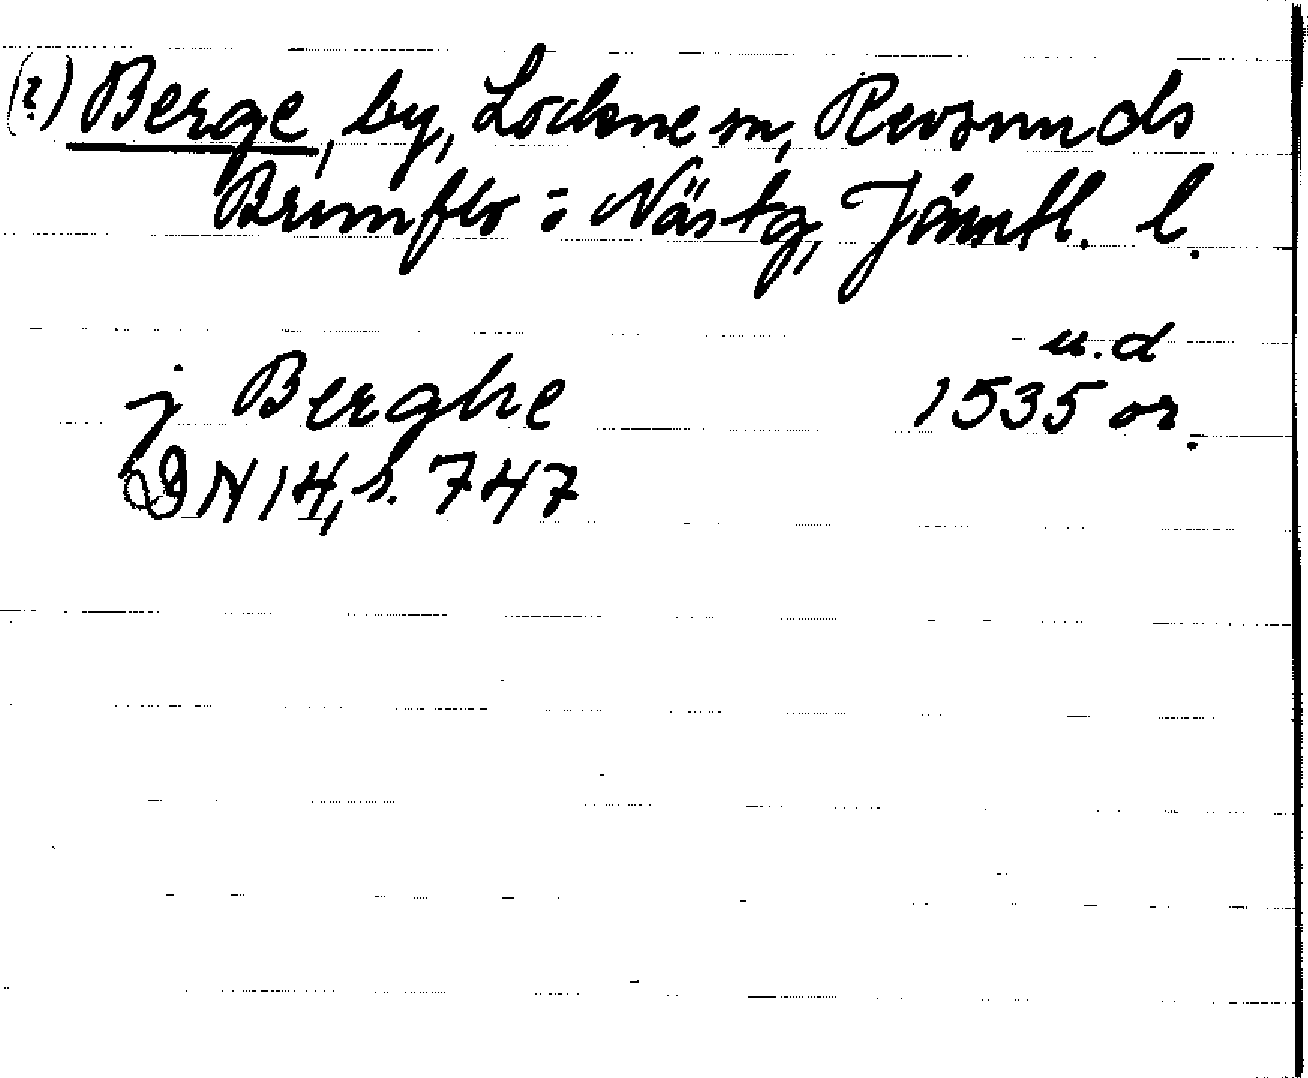 (?) Berge, by, Lockne sn, Revsunds
Brunflo o Näs tg, Jämtl. l.
u.d
j Berghe 1535 or.
DN 14, s. 747